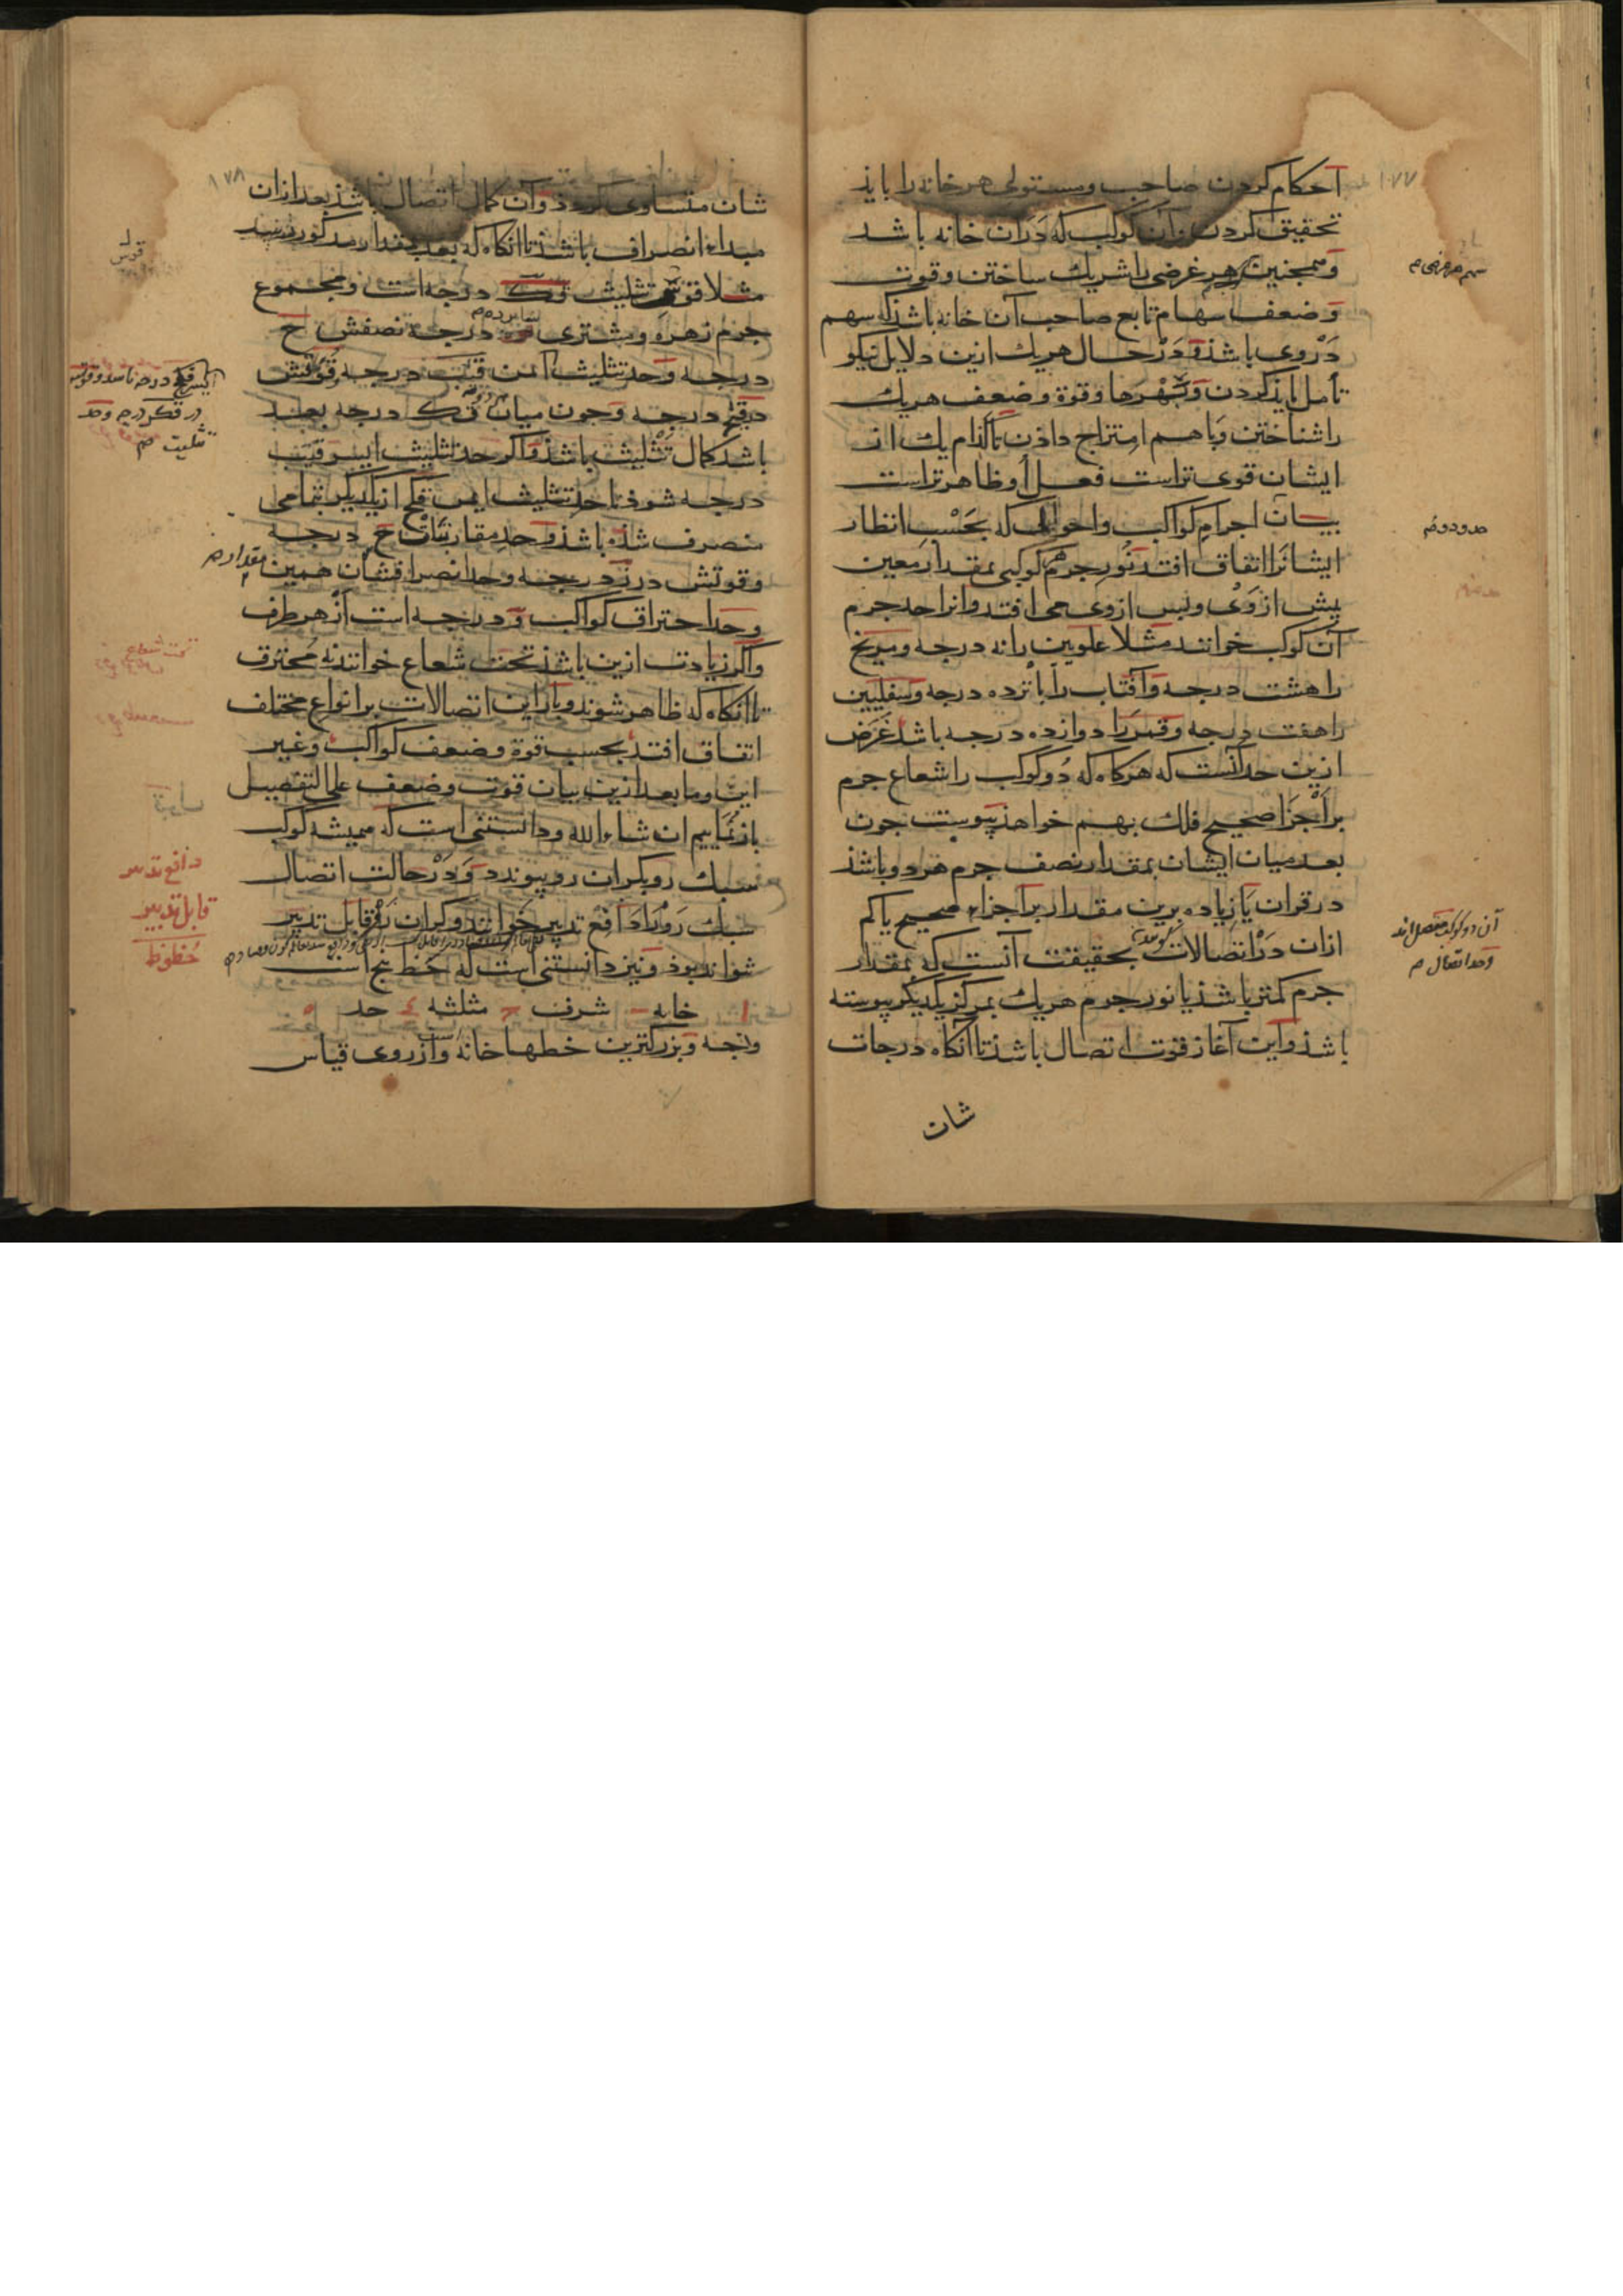 ۱۰۷۷
احکام کردن صاحب و مستولی هر خانه را باید
تحقیق کردن و آن کوکب که دران خانه باشد
و همچنین سهم هر غرضی را شریک ساختن و قوت
و ضعف سهام تابع صاحب آن خانه باشد که سهم
در وی باشد و در حال هر یک ازین دلایل نیکو
تأمل باید کردن و بهرها و قوة و ضعف هر یک
را شناختن و با هم امتزاج دادن تا کدام یک از
ایشان قوی تراست فعل او ظاهر تراست
بیان اجرام کواکب و احوالی که بحسب انظار
ایشانرا اتفاق افتد نور جرم هر کوکبی بمقدار معین
پیش از وی و پس از وی می افتد و انرا حد جرم
آن کوکب خوانند مثلا علویین را نه درجه و مریخ
را هشت درجه و آفتاب را پانزده درجه و سفلیین
را هفت درجه و قمر را دوازده درجه باشد غرض
ازین حد آنست که هرکاه که دو کوکب را شعاع جرم
بر اجزا صحیح فلک بهم خواهد پیوست جون
بعد میان ایشان بمقدار نصف جرم هر دو باشد
در قران یا زیاده برین مقدار بر اجزاء صحیح یا کم
ازان در اتصالات بحقیقت آنست که بمقدار
جرم کمتر باشد یا نور جرم هر یک بمرکز یکدیگر پیوسته
باشد و این آغاز قوت اتصال باشد تا آنکاه درجات
شان
آن دو کوکب متصل اند
و حد اتصال م
۱۰۷۸
شان متساوی کردد و آن کمال اتصال باشد بعد ازان
مبداء انصراف باشد تا انکاه که بعد بمقدار مذکور رسد
مثلا قوس تثلیث قک درجه است و مجموع
جرم زهره و مشتری درجه نصفش ح
درجه و حد تثلیث ایمن قیب درجه قوتش
درجه و جون میان قک درجه بعد
باشد کمال تثلیث باشد و اکر حد تثلیث ایسر قیب
درجه شود تا حد تثلیث ایمن قکح از یکدیگر بتمامی
منصرف شده باشد و حد مقارنتشان ح درجه
و قوتش در درجه و حد انصرافشان همین مقدار
و حد احتراق کواکب و درجه است از هر طرف
و اکر زیادت ازین باشد تحت شعاع خوانند نه محترق
تا انکاه که ظاهر شوند و باز این اتصالات بر انواع مختلف
اتفاق افتد بحسب قوة و ضعف کواکب و غیر
این و ما بعد ازین بیان قوت و ضعف علی التفصیل
باز نماییم ان شاء الله و دانستنی است که همیشه کوکب
سبک رو بکران رو پیوندد و در حالت اتصال
سبک رو را دافع تدبیر خوانند و کران رو قابل تدبیر
شواند بود و نیز دانستنی است که حظ پنج است
۱ خانه ۲ شرف ۳ مثلثه ۴ حد ۵
وجه و بزرکترین حظها خانه است و از روی قیاس
قوس
تثلیث
تحت شعاع
دافع تدبیر
قابل تدبیر
حظوظ